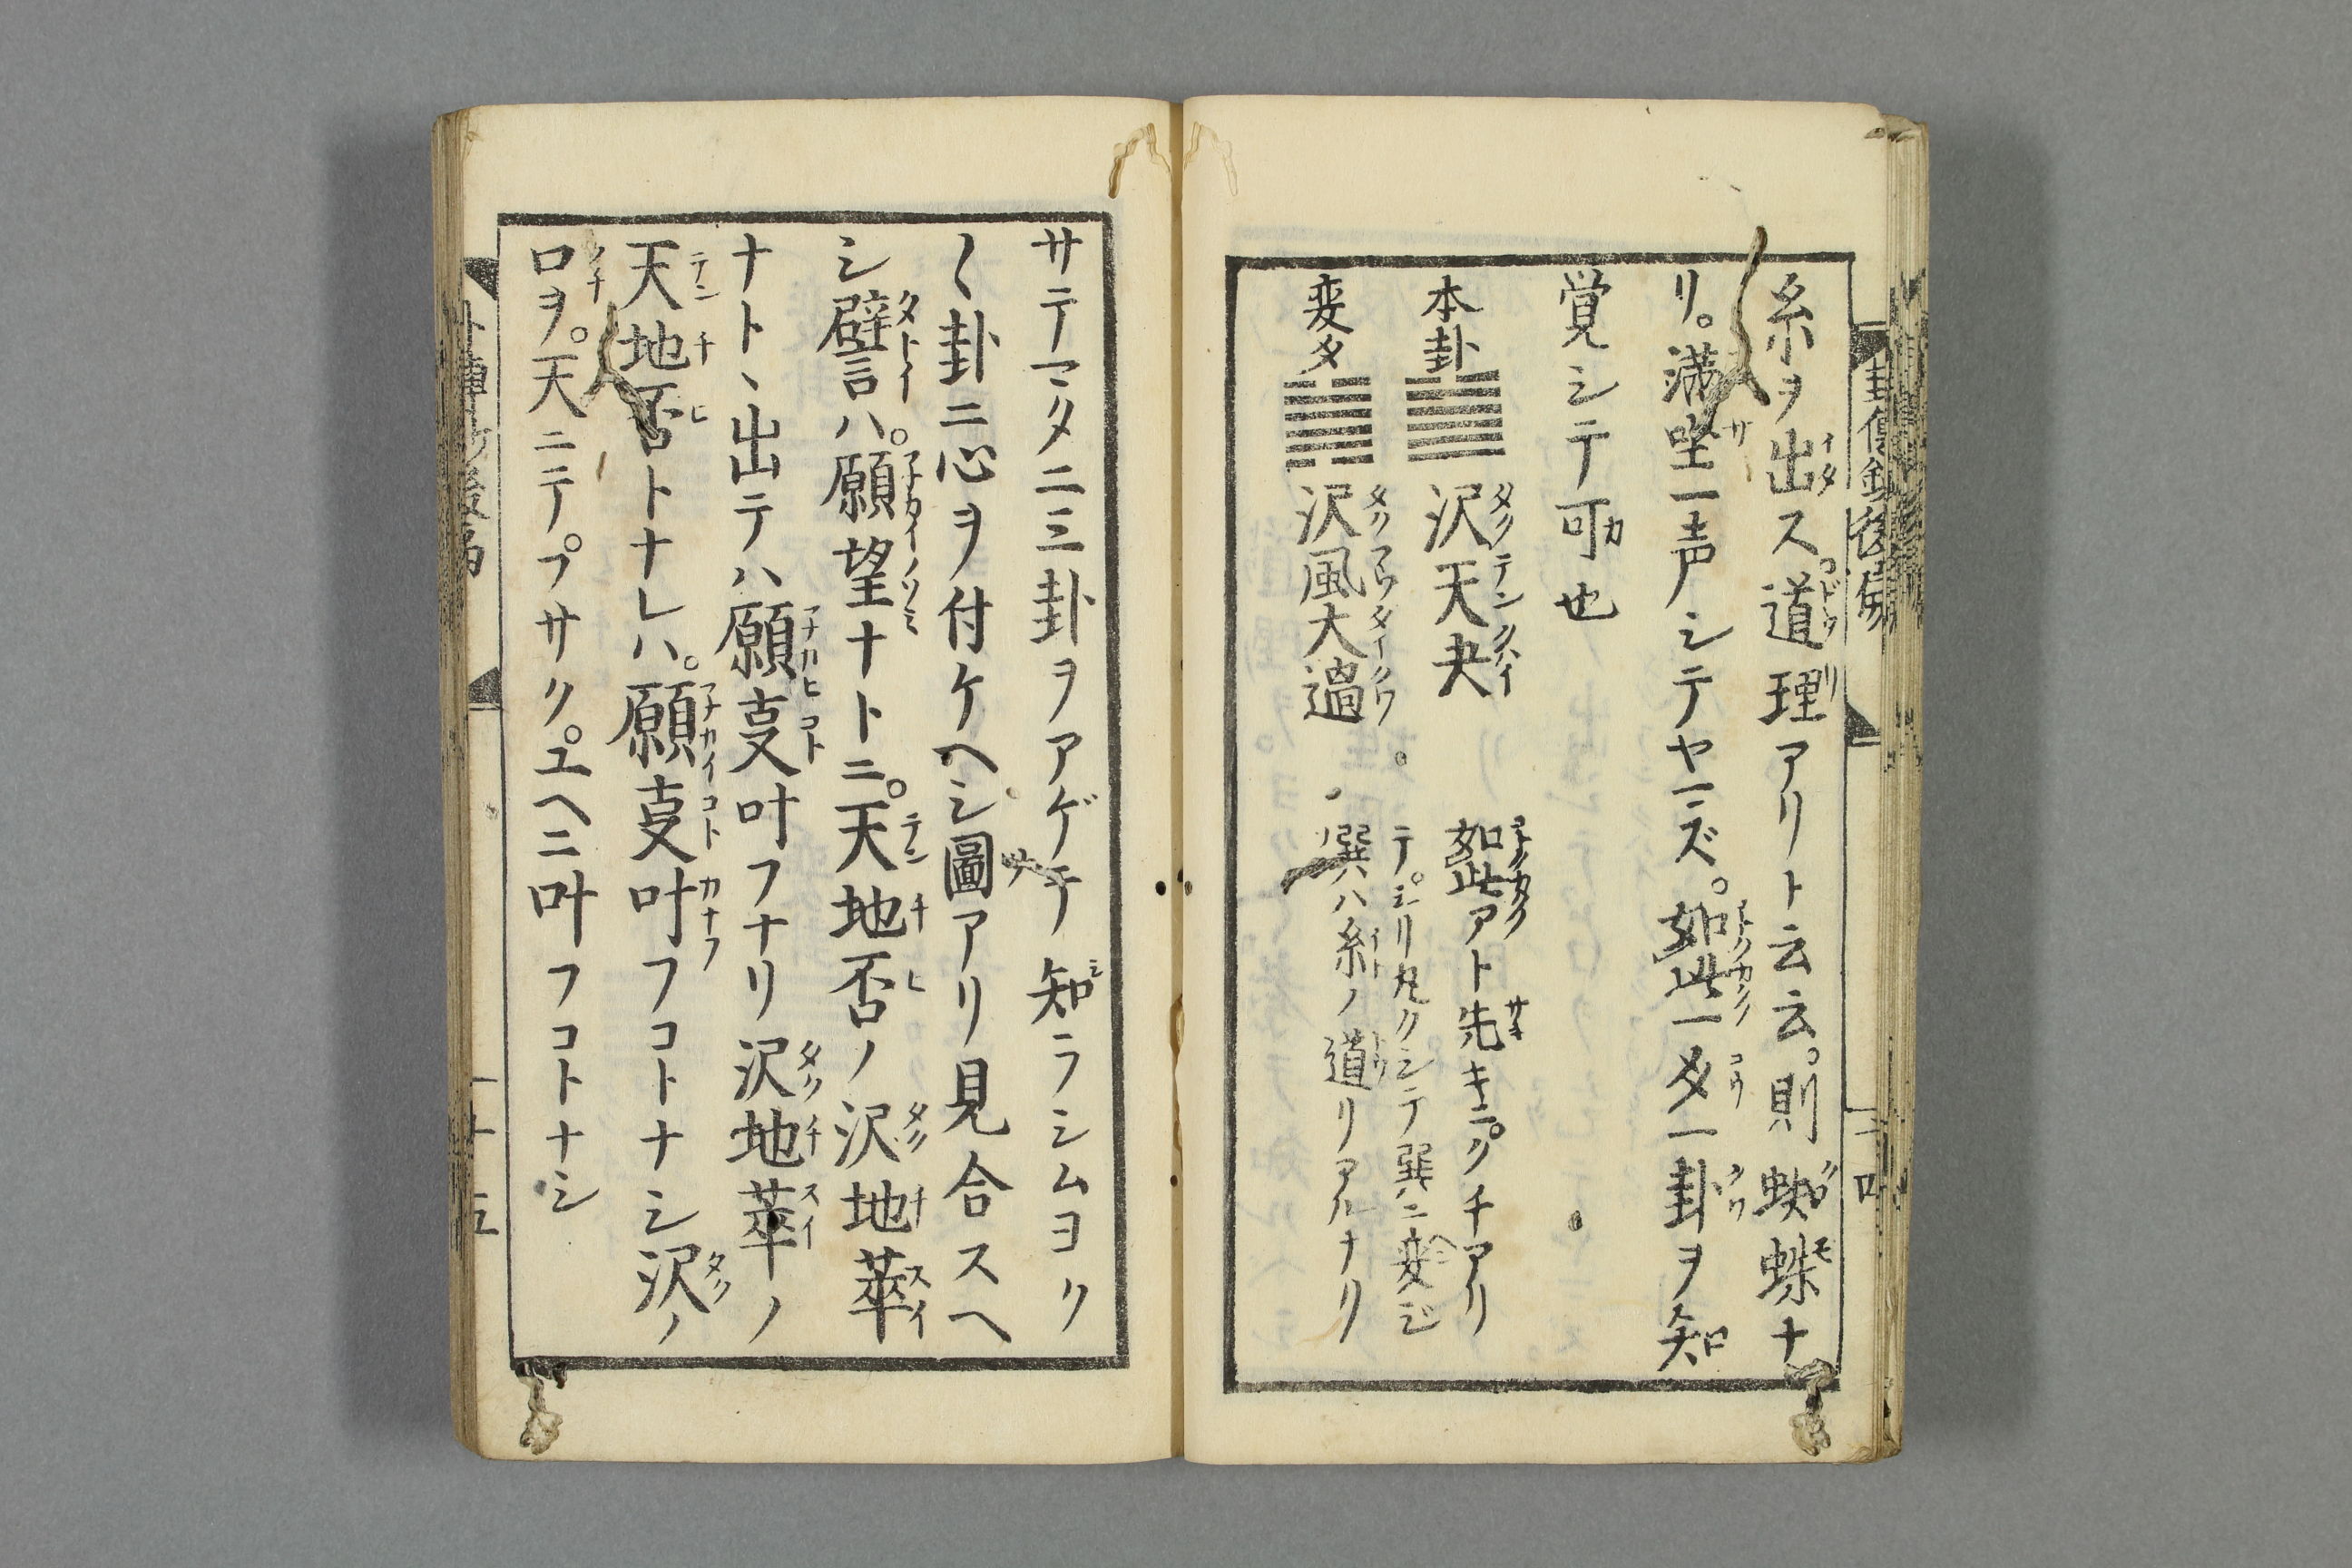 糸ヲ出ス。道理アリト云云。則蜘蛛ナ
リ。満坐一声シテヤマズ。如此一爻一卦ヲ知
覚シテ可也
本卦 沢天夬
如此アト先キニ。クチアリ
テ。シリ丸クシテ巽ニ変ジ
変爻 沢風大過
巽ハ糸ノ道リアルナリ
サテマタ二三卦ヲアゲテ知ラシムヨク
〱卦ニ心ヲ付ケヘシ圖アリ見合スヘ
シ譬言ハ。願望ナトニ。天地否ノ沢地萃
ナトヽ出テハ願叓叶フナリ沢地萃ノ
天地否トナレハ。願叓叶フコトナシ沢ノ
口ヲ。天ニテ。フサク。エヘニ叶フコトナシ